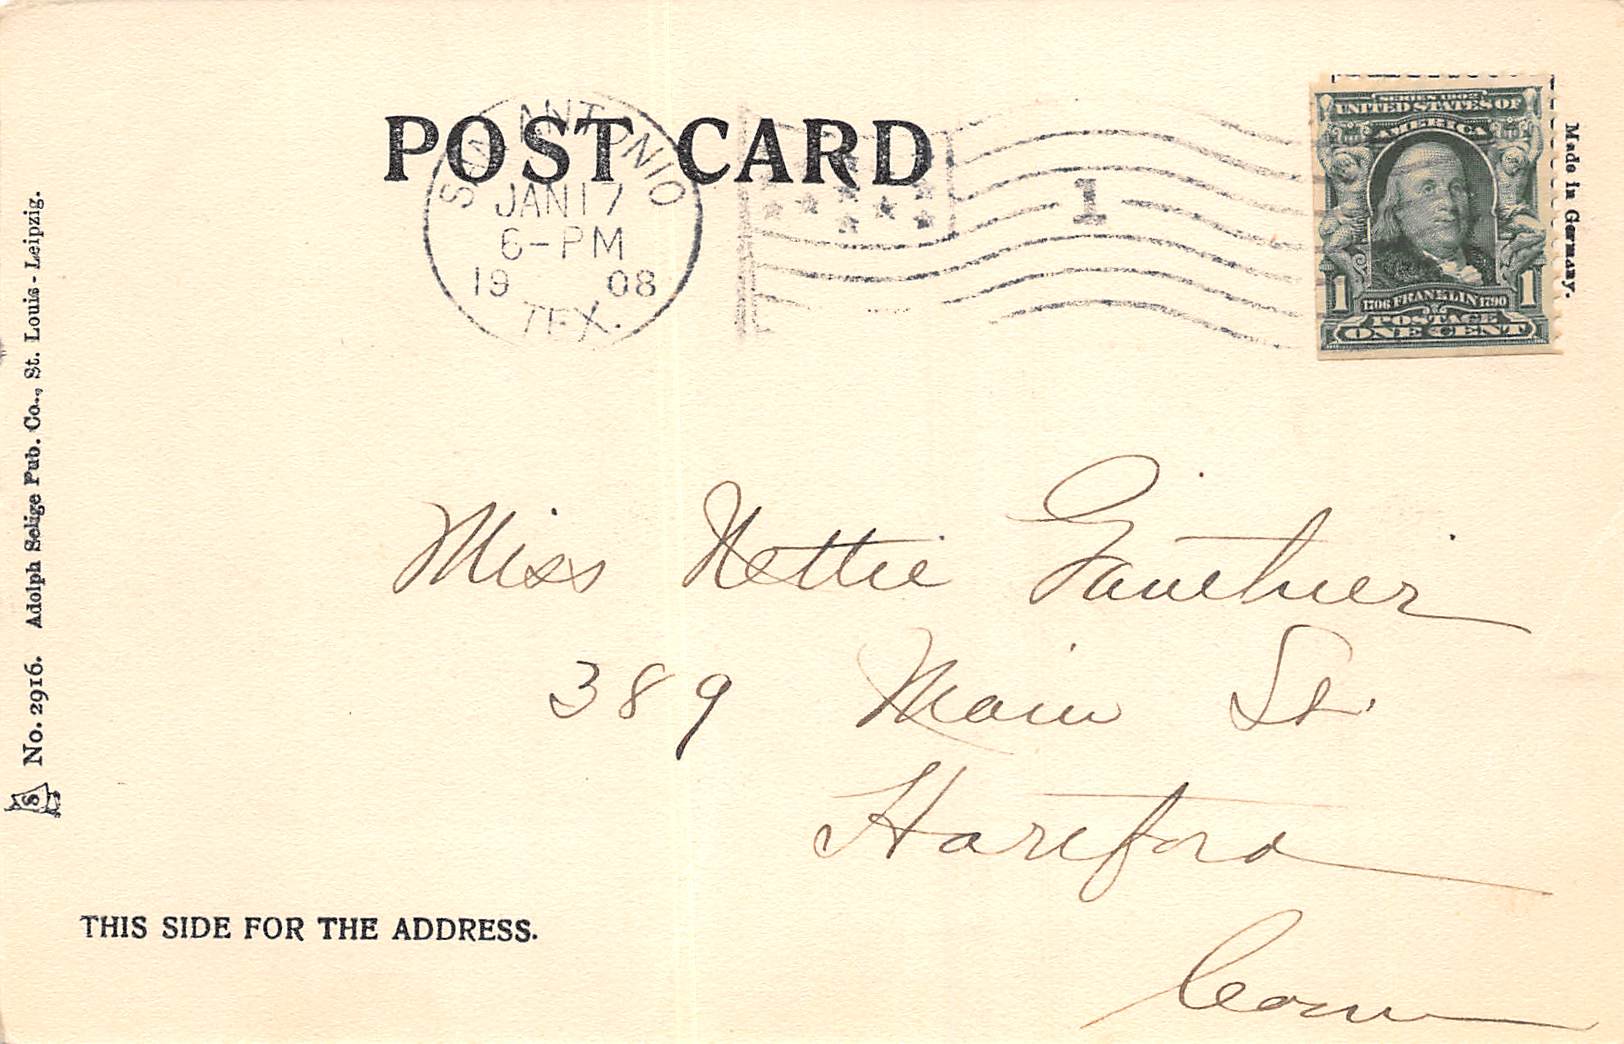 POST CARD
SAN ANTONIO
JAN 17
6-PM
19 08
TEX.
1
SERIES 1902
UNITED STATES OF
AMERICA
1706 FRANKLIN 1790
1 1
POSTAGE
ONE CENT
Made in Germany.
Miss Nettie Gauthier
389 Main St.
Hartford
Conn
THIS SIDE FOR THE ADDRESS.
S No. 2916. Adolph Selige Pub. Co., St. Louis - Leipzig.